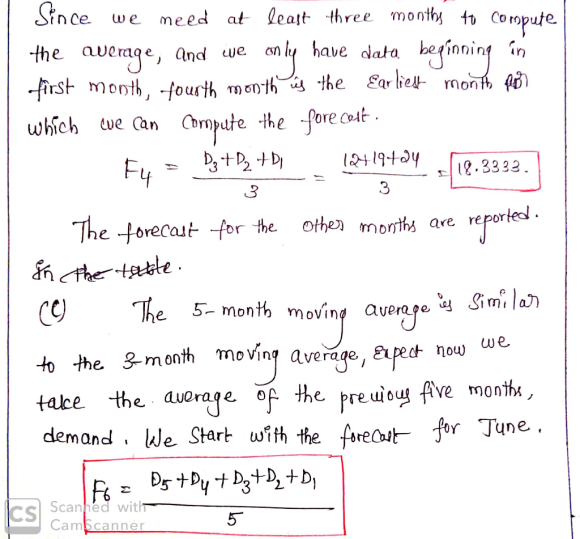 Since we need at least three months to compute
the average, and we only have data beginning in
first month, fourth month is the Earliest month for
which we can compute the forecast.
F4 = D3+D2+D1 / 3 = 12+19+24 / 3 = 18.3333.
The forecast for the other months are reported.
in the table.
(C) The 5-month moving average is Similar
to the 3-month moving average, Expect now we
take the average of the previous five months,
demand. We Start with the forecast for June.
F6 = D5+D4+D3+D2+D1 / 5
CS Scanned with
CamScanner